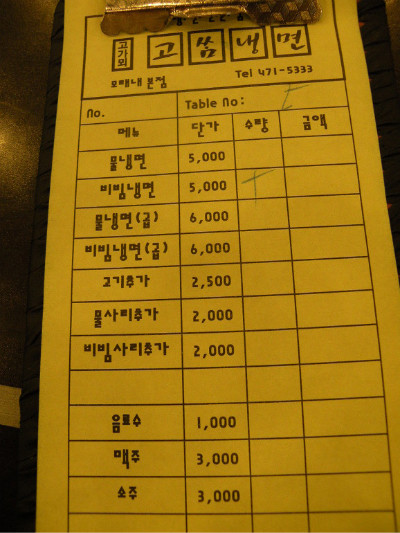 고기와 고쌈냉면
모래내 본점 Tel 471-5333
No. Table No:
메뉴 단가 수량 금액
물냉면 5,000
비빔냉면 5,000
물냉면(곱) 6,000
비빔냉면(곱) 6,000
고기추가 2,500
물사리추가 2,000
비빔사리추가 2,000
음료수 1,000
맥주 3,000
소주 3,000